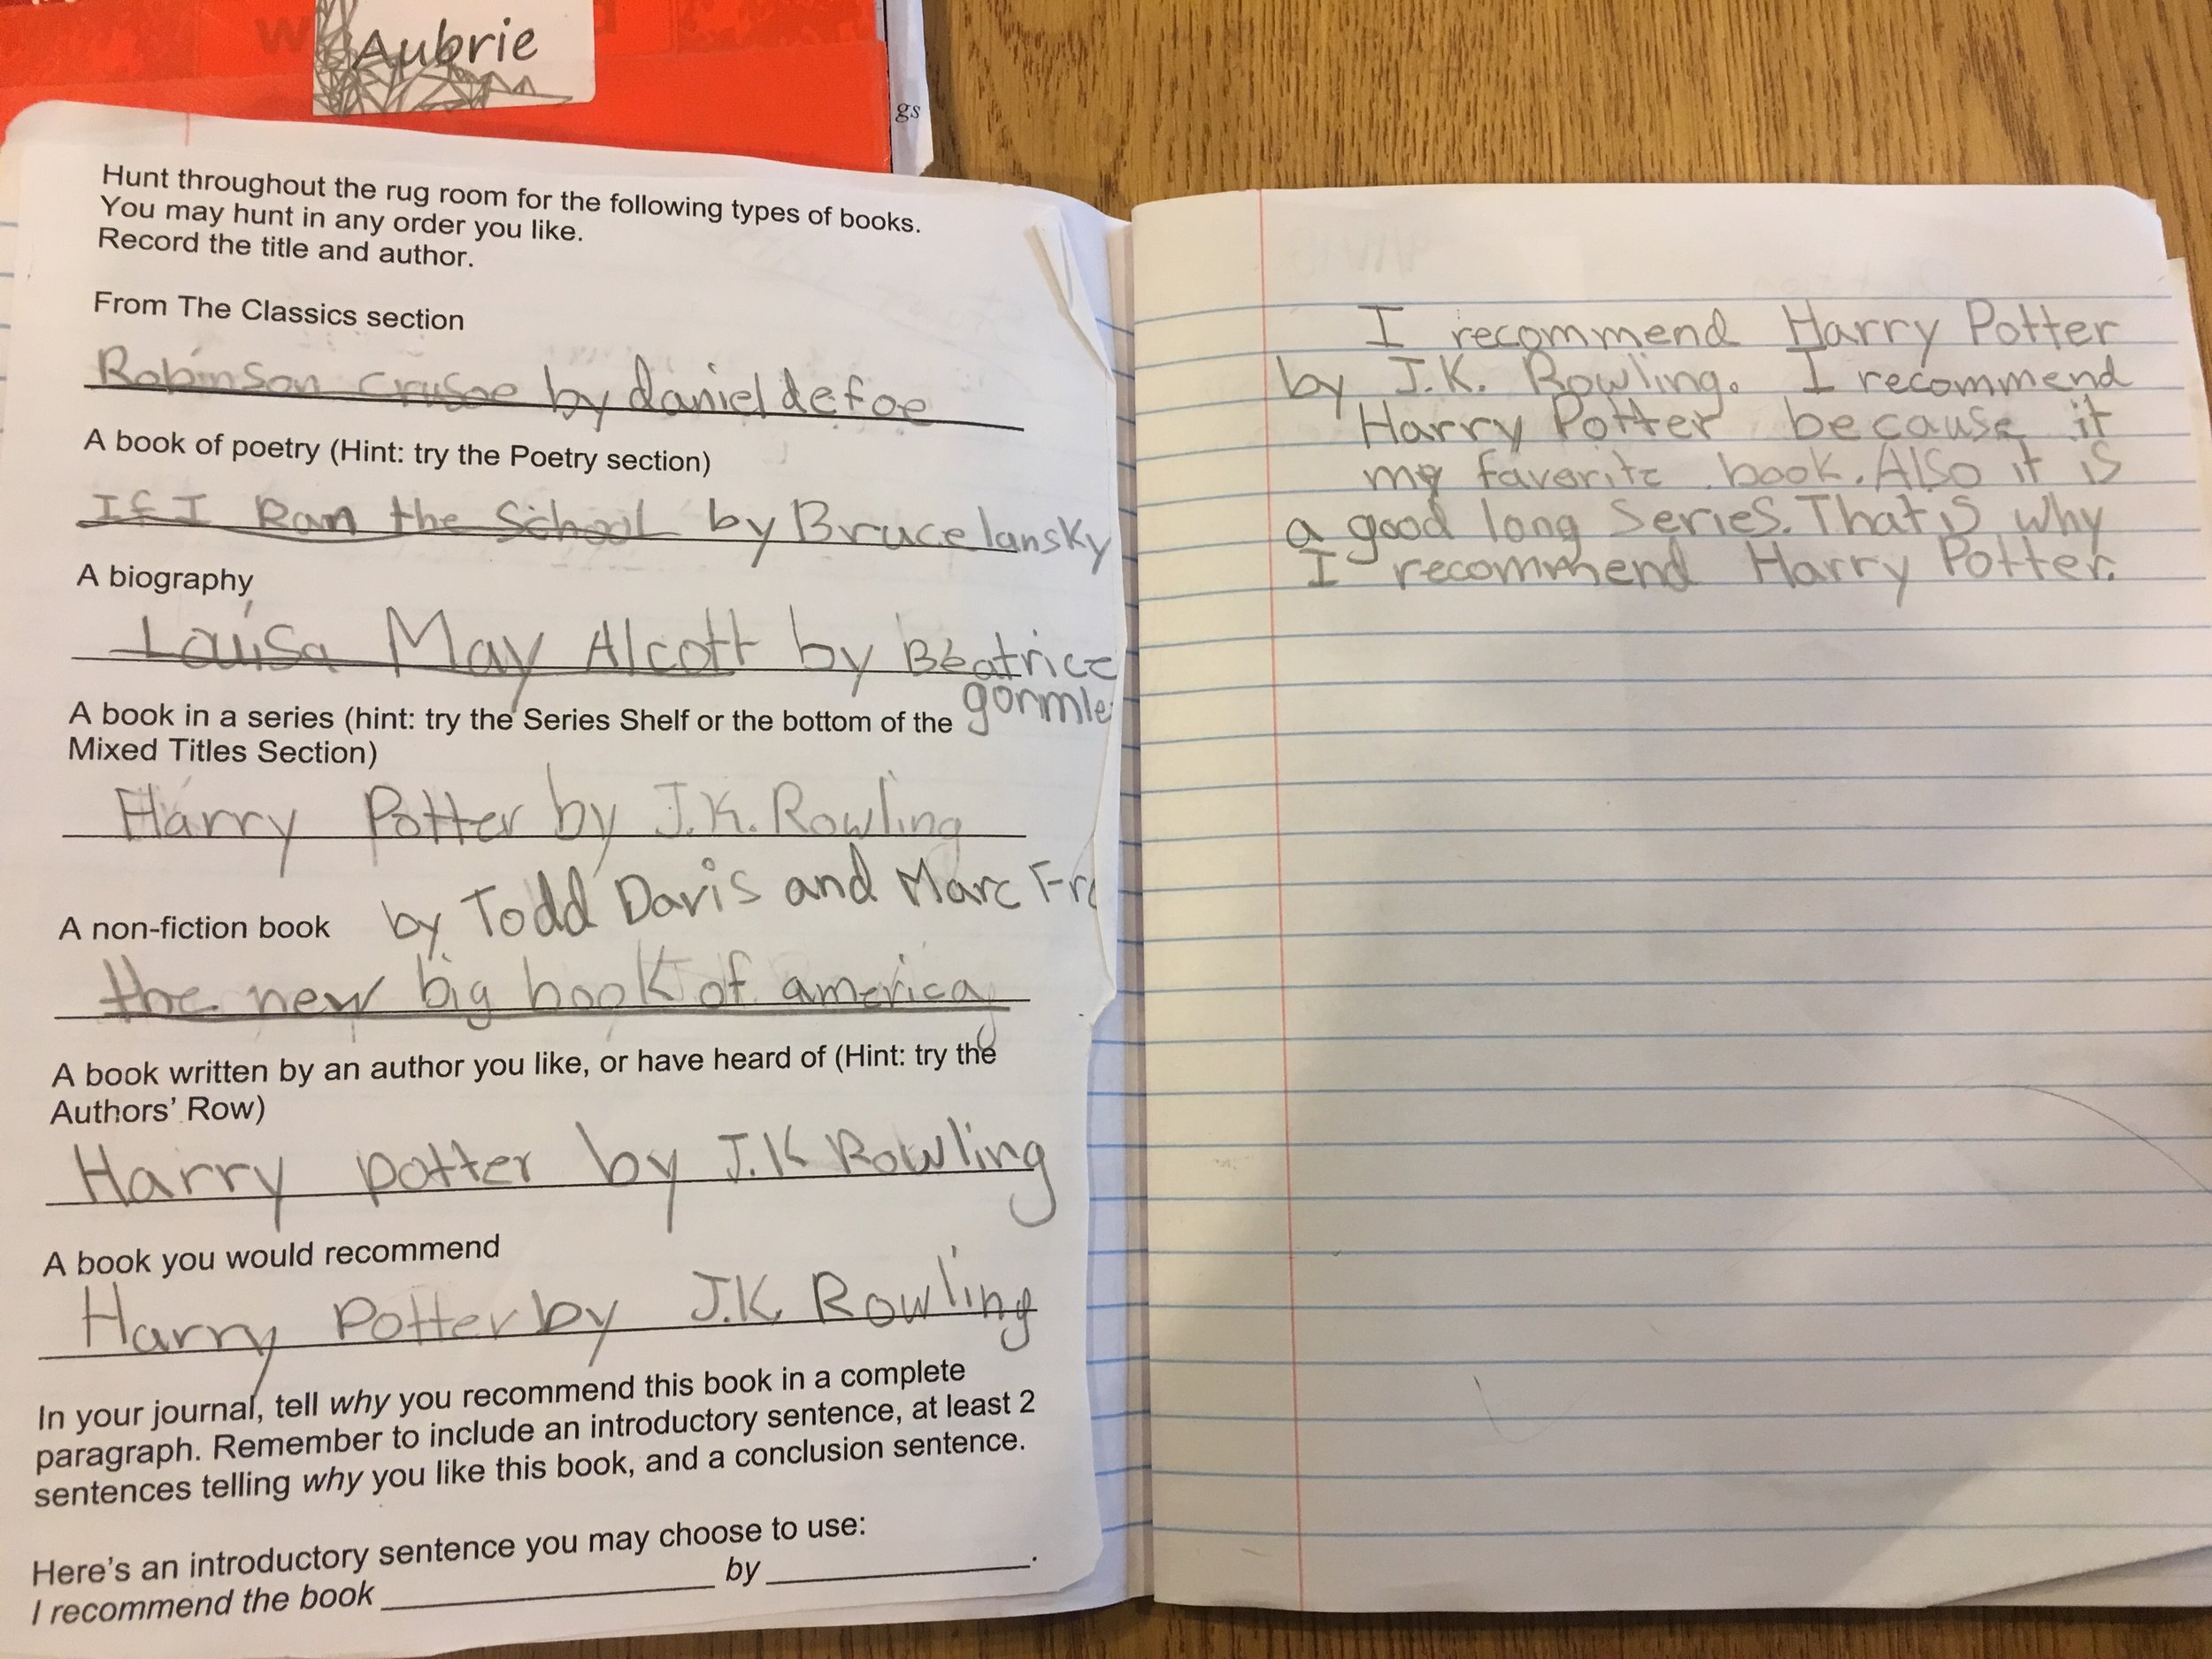 Aubrie
gs
Hunt throughout the rug room for the following types of books.
You may hunt in any order you like.
Record the title and author.
From The Classics section
Robinson Crusoe by daniel defoe
A book of poetry (Hint: try the Poetry section)
If I Ran the School by Bruce lansky
A biography
Louisa May Alcott by Beatrice
gormle
A book in a series (hint: try the Series Shelf or the bottom of the
Mixed Titles Section)
Harry Potter by J.K. Rowling
by Todd Davis and Marc Fr
A non-fiction book
the new big book of america
A book written by an author you like, or have heard of (Hint: try the
Authors' Row)
Harry potter by J.K Rowling
A book you would recommend
Harry Potter by J.K. Rowling
In your journal, tell why you recommend this book in a complete
paragraph. Remember to include an introductory sentence, at least 2
sentences telling why you like this book, and a conclusion sentence.
Here's an introductory sentence you may choose to use:
I recommend the book by .
I recommend Harry Potter
by J.K. Rowling. I recommend
Harry Potter because it
my favorite book. Also it is
a good long series. That is why
I recommend Harry Potter.